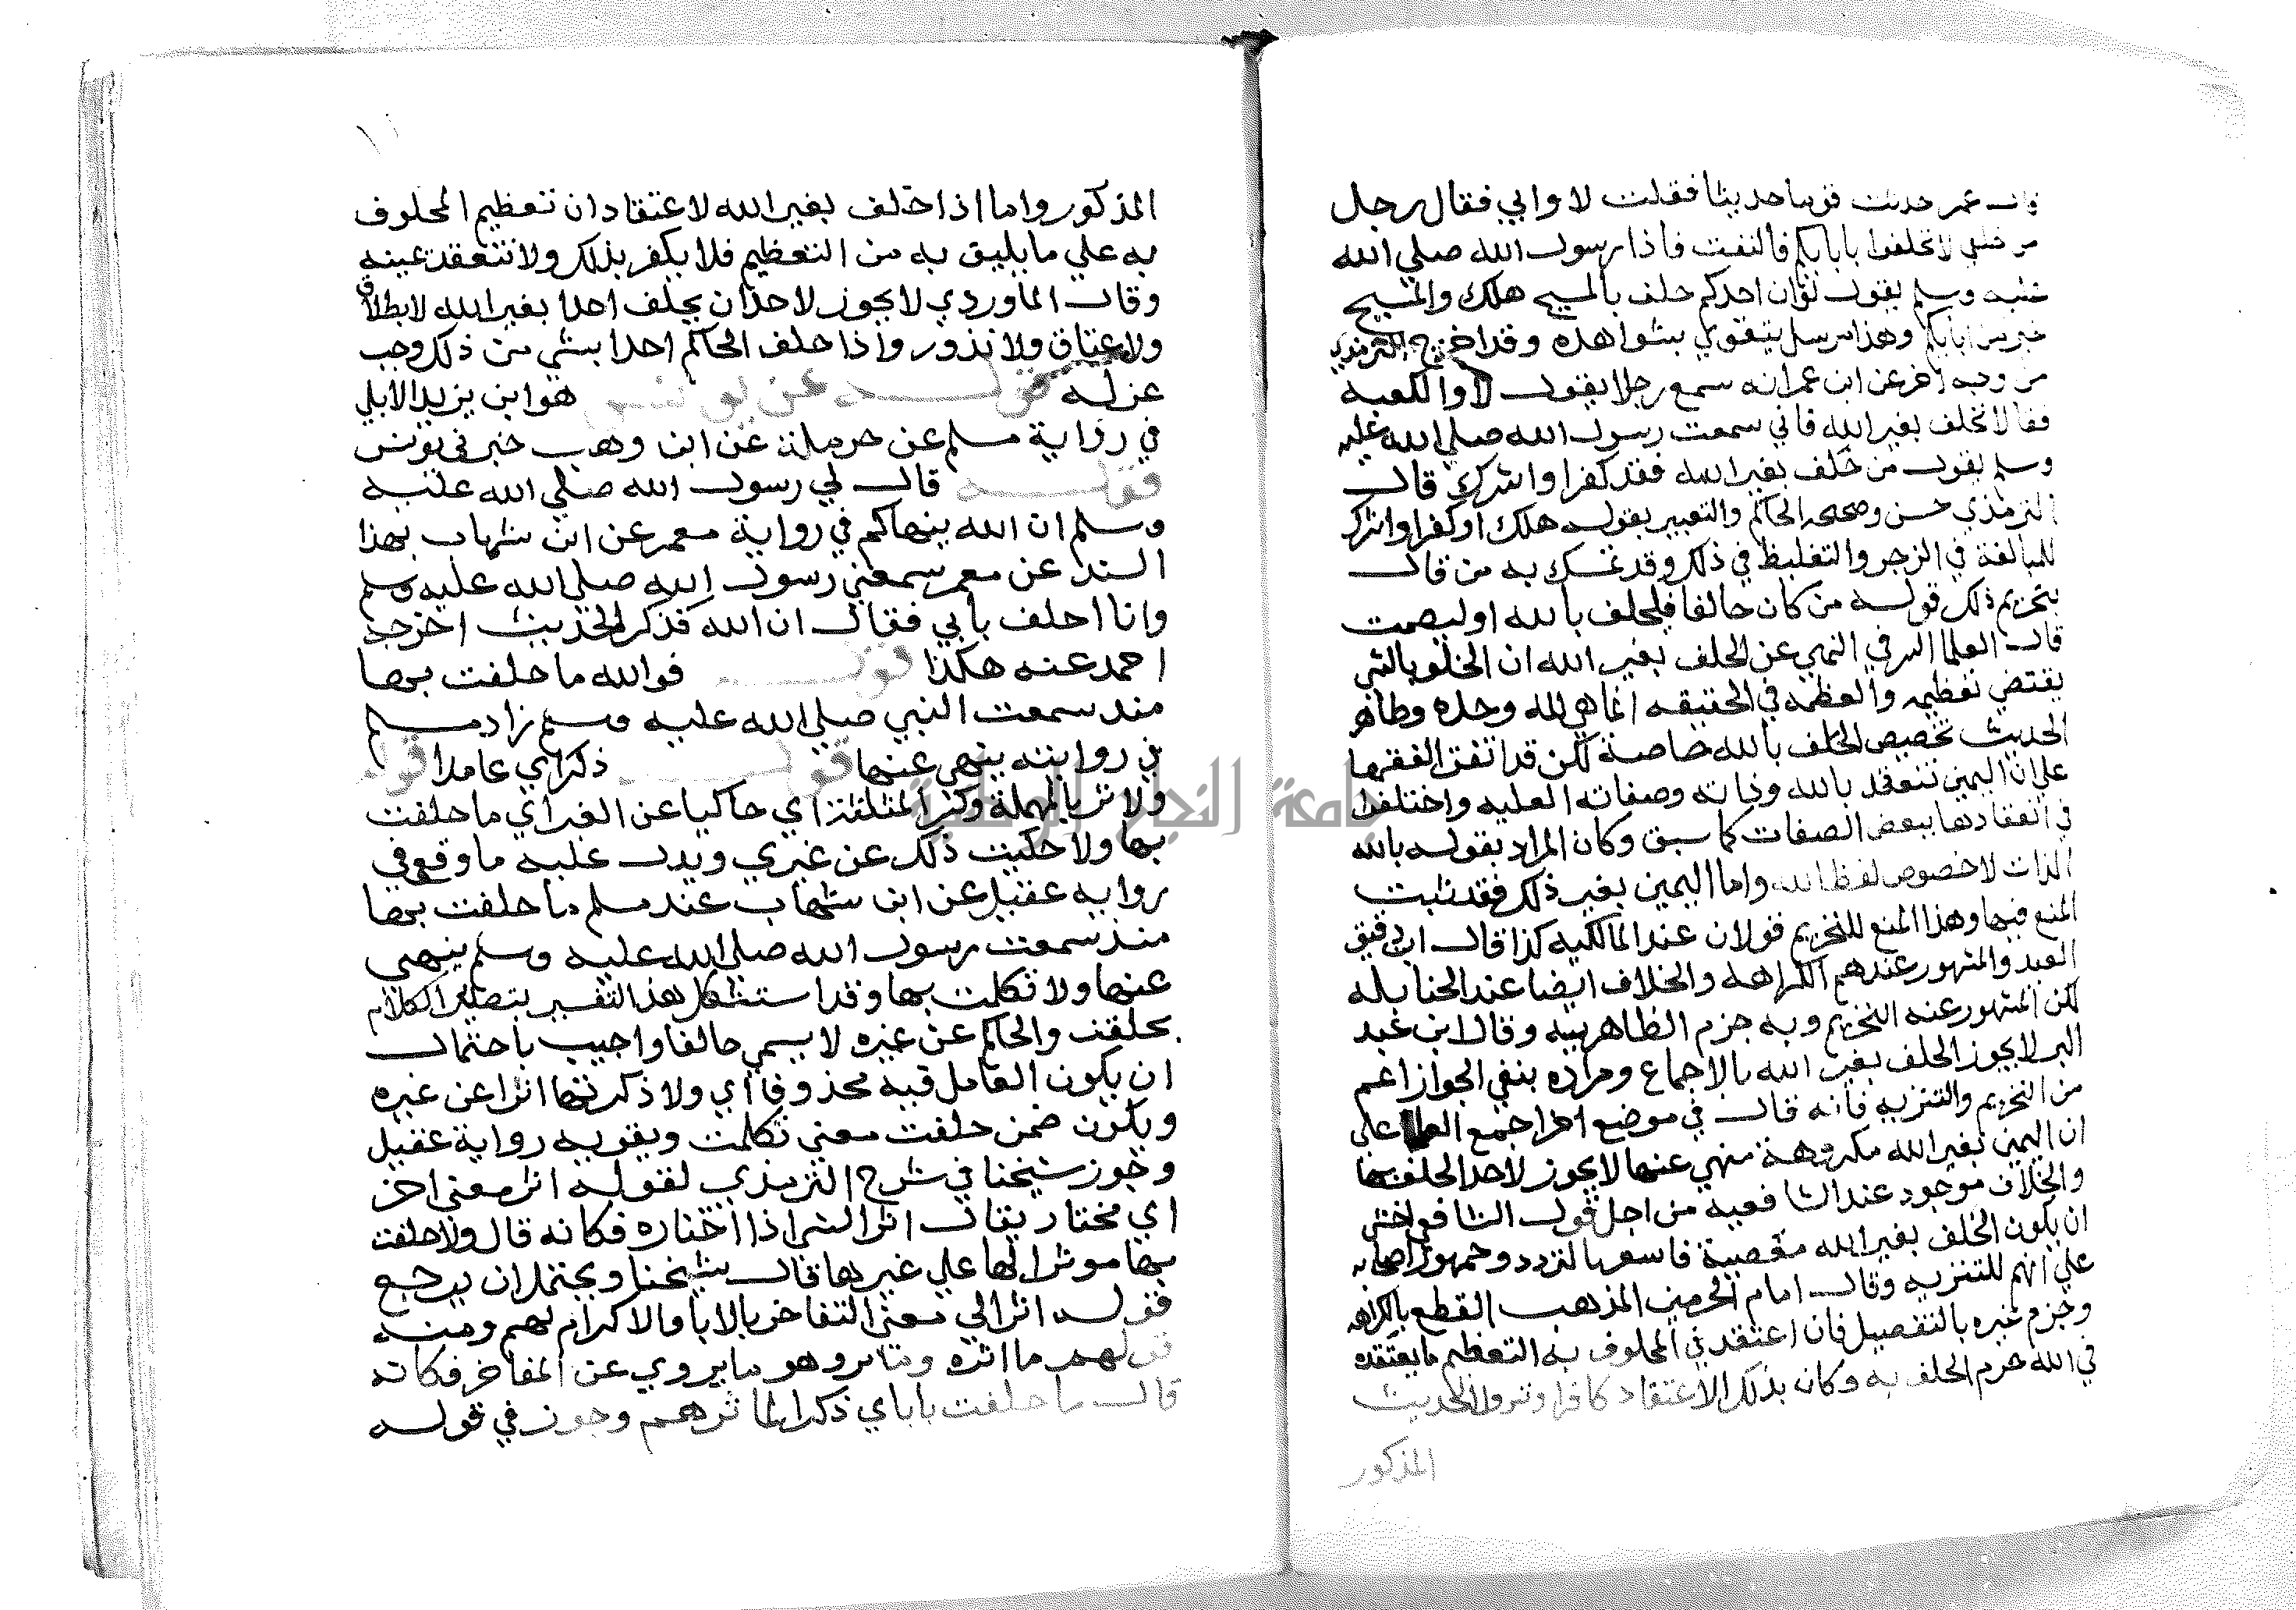 قال عمر حدثت قوما حديثا فقلت لا وابي فقال رجل
من خلفي لا تحلفوا بابايكم فالتفت فاذا رسول الله صلي الله
عليه وسلم يقول لو ان احدكم حلف بالمسيح هلك والمسيح
خير من ابايكم وهذا مرسل يتقوي بشواهده وقد اخرج الترمذي
من وجه اخر عن ابن عمر انه سمع رجلا يقول لا والكعبه
فقال لا تحلف بغير الله فاني سمعت رسول الله صلي الله عليه
وسلم يقول من حلف بغير الله فقد كفر او اشرك قال
الترمذي حسن وصححه الحاكم والتعبير بقوله هلك او كفر او اشرك
للمبالغة في الزجر والتغليظ في ذلك وقد تمسك به من قال
بتحريم ذلك قوله من كان حالفا فليحلف بالله او ليصمت
قال العلما السر في النهي عن الحلف بغير الله ان الحلف بالشي
يقتضي تعظيمه والعظمه في الحقيقه انما هي لله وحده وظاهر
الحديث تخصيص الحلف بالله خاصة لكن قد اتفق الفقها
علي ان اليمين تنعقد بالله وذاته وصفاته العليه واختلفوا
في انعقادها ببعض الصفات كما سبق وكان المراد بقوله بالله
الذات لا خصوص لفظ الله واما اليمين بغير ذلك فقد ثبت
المنع فيها وهذا المنع للتحريم قولان عند المالكيه كذا قال ابن دقيق
العيد والمشهور عندهم الكراهه والخلاف ايضا عند الحنابله
لكن المشهور عنه التحريم وبه جزم الظاهريه وقال ابن عبد
البر لا يجوز الحلف بغير الله بالاجماع ومراده بنفي الجواز اعم
من التحريم والتنزيه فانه قال في موضع اخر اجمع العلما علي
ان اليمين بغير الله مكروهة منهي عنها لا يجوز لاحد الحلف بها
والخلاف موجود عند الشافعيه من اجل قول الشافعي اخشي
ان يكون الحلف بغير الله معصية فاشعر بالتردد وجمهور اصحابه
علي انهم للتنزيه وقال امام الحرمين المذهب القطع بالكراهه
وجزم غيره بالتفصيل فان اعتقد في المحلوف به التعظيم ما يعتقده
في الله حرم الحلف به وكان بذلك الاعتقاد كافرا وتنزل الحديث
المذكور
١٠
المذكور واما اذا حلف بغير الله لاعتقاد ان تعظيم المحلوف
به علي ما يليق به من التعظيم فلا يكفر بذلك ولا تنعقد يمينه
وقال الماوردي لا يجوز لاحد ان يحلف احدا بغير الله لا بطلاق
ولا عتاق ولا نذور واذا حلف الحاكم احدا بشي من ذلك وجب
عزله قوله عن يونس هو ابن يزيد الايلي
في رواية مسلم عن حرملة عن ابن وهب خبرني يونس
قوله قال لي رسول الله صلي الله عليه
وسلم ان الله ينهاكم في رواية معمر عن ابن شهاب بهذا
السند عن معمر سمعني رسول الله صلي الله عليه وسلم
وانا احلف بابي فقال ان الله فذكر الحديث اخرجه
احمد عنه هكذا قوله فوالله ما حلفت بها
منذ سمعت النبي صلي الله عليه وسلم زاد مسلم
في روايته ينهي عنها قوله ذكرا اي عامدا قوله
ولا اثرا بالمهملة وكسر المثلثة اي حاكيا عن الغير اي ما حلفت
بها ولا حكيت ذلك عن غيري ويدل عليه ما وقع في
رواية عقيل عن ابن شهاب عند مسلم ما حلفت بها
منذ سمعت رسول الله صلي الله عليه وسلم ينهي
عنها ولا تكلمت بها وقد استشكل هذا التفسير بتصدير الكلام
بحلفت والحاكم عن غيره لا يسمي حالفا واجيب باحتمال
ان يكون العامل فيه محذوفا اي ولا ذكرتها اثرا عن غيره
ويكون ضمن حلفت معني تكلمت ويقويه رواية عقيل
وجوز شيخنا في شرح الترمذي لقوله اثر معني اخر
اي مختار يقال اثر الشي اذا اختاره فكانه قال ولا حلفت
بها موثرا لها علي غيرها قال شيخنا ويحتمل ان يرجع
قوله اثرا الي معني التفاخر بالابا والاكرام لهم ومنه
قولهم ماثره وماثر وهو ما يروي عن المفاخر فكانه
قال ما حلفت باباي ذكرا لماثرهم وجوز في قوله
جامعة النجاح الوطنية